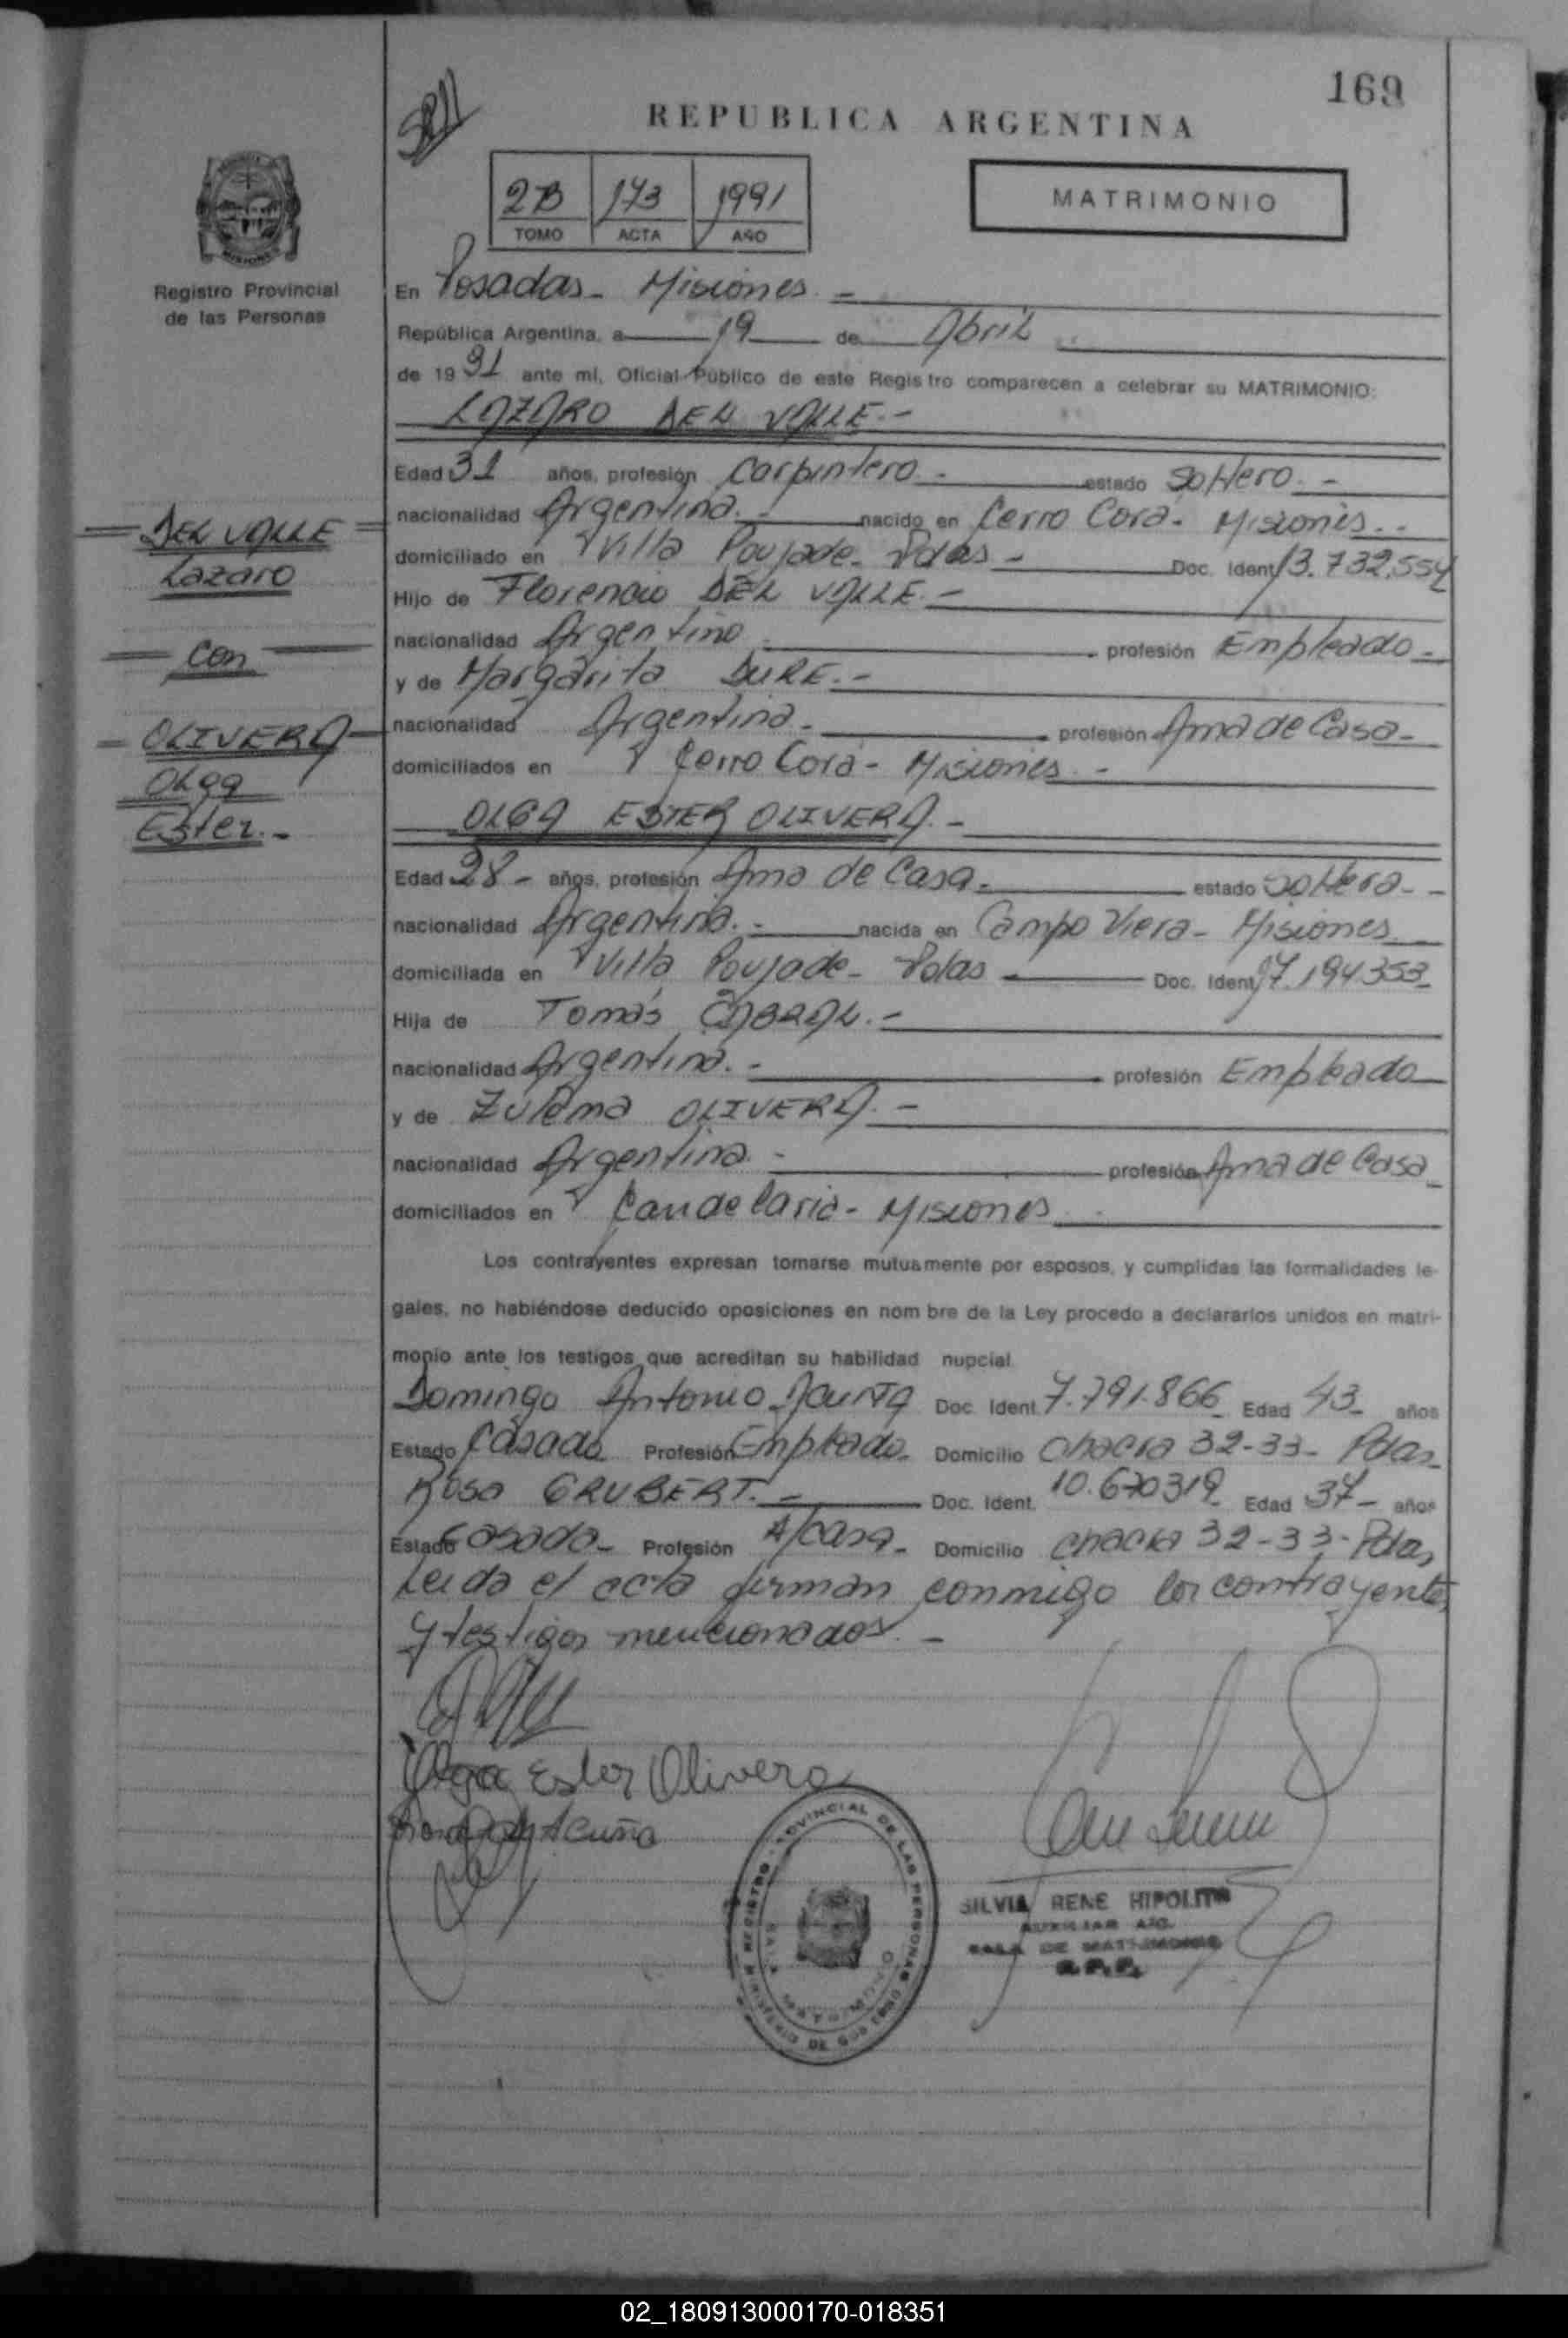 169
REPUBLICA ARGENTINA
2B 173 1991
TOMO ACTA AÑO
MATRIMONIO
Registro Provincial
de las Personas
En Posadas - Misiones. -
República Argentina, a 19 de Abril
de 1991 ante mí, Oficial Público de este Registro comparecen a celebrar su MATRIMONIO:
LAZARO DEL VALLE. -
Edad 31 años, profesión Carpintero. - estado Soltero. -
nacionalidad Argentina. - nacido en Cerro Corá - Misiones. -
domiciliado en Villa Poujade - Pdas - Doc. Ident. 13.732.554
Hijo de Florencio DEL VALLE. -
nacionalidad Argentino profesión Empleado -
y de Margarita DURE. -
nacionalidad Argentina - profesión Ama de Casa -
domiciliados en Cerro Corá - Misiones. -
DEL VALLE
Lazaro
con
OLIVERA
Olga
Ester. -
OLGA ESTER OLIVERA. -
Edad 28 - años, profesión Ama de Casa - estado Soltera -
nacionalidad Argentina. - nacida en Campo Viera - Misiones
domiciliada en Villa Poujade - Pdas - Doc. Ident. 17.194.353 -
Hija de Tomás CABRAL. -
nacionalidad Argentina. - profesión Empleado
y de Zulema OLIVERA. -
nacionalidad Argentina - profesión Ama de Casa
domiciliados en Candelaria - Misiones
Los contrayentes expresan tomarse mutuamente por esposos, y cumplidas las formalidades le-
gales, no habiéndose deducido oposiciones en nombre de la Ley procedo a declararlos unidos en matri-
monio ante los testigos que acreditan su habilidad nupcial
Domingo Antonio Doc. Ident. 7.791.866 Edad 43 - años
Estado Casado Profesión Empleado - Domicilio Chacra 32-33 - Pdas -
Rosa GRUBERT. - Doc. Ident. 10.670319 Edad 37 - años
Estado Casada - Profesión A/casa - Domicilio Chacra 32-33 - Pdas,
Leida el acta firman conmigo los contrayentes,
y testigos mencionados. -
Olga Ester Olivera
Acuña
REGISTRO PROVINCIAL DE LAS PERSONAS
MINISTERIO DE GOBIERNO
SALA MATRIMONIO
SILVIA RENE HIPOLITO
AUXILIAR
SALA DE MATRIMONIOS
R.P.P.
02_180913000170-018351